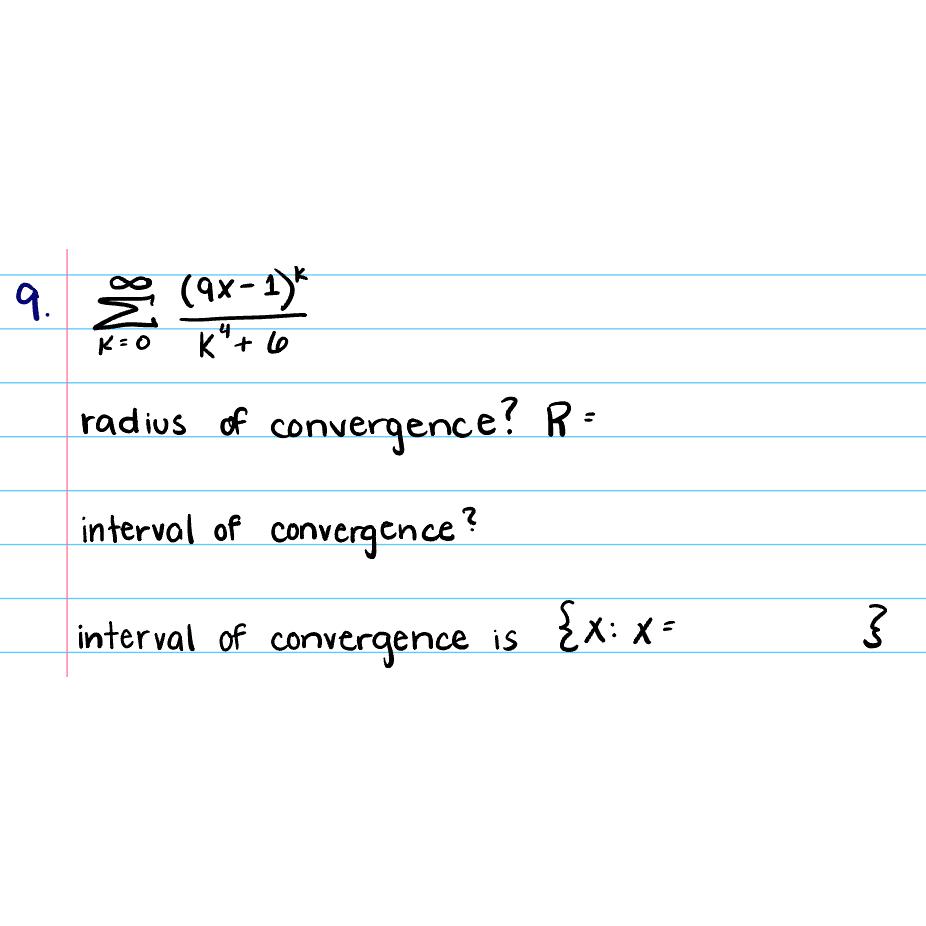 9. ∞ Σ K=0 (9x-1)^k / K^4+6
radius of convergence? R =
interval of convergence?
interval of convergence is {x: x= }